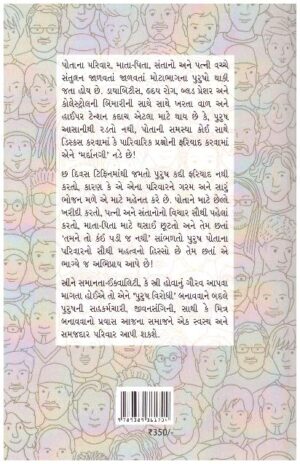 પોતાના પરિવાર, માતા-પિતા, સંતાનો અને પત્ની વચ્ચે
સંતુલન જાળવતાં જાળવતાં મોટાભાગના પુરુષો થાકી
જતા હોય છે. ડાયાબિટીસ, હૃદય રોગ, બ્લડ પ્રેશર અને
કોલેસ્ટ્રોલની બિમારીની સાથે સાથે ખરતા વાળ અને
હાઈપર ટેન્શન કદાચ એટલા માટે થાય છે કે, પુરુષ
આસાનીથી રડતો નથી, પોતાની સમસ્યા કોઈ સાથે
ડિસ્કસ કરવામાં કે પારિવારિક પ્રશ્નોની ફરિયાદ કરવામાં
એને ‘મર્દાનગી’ નડે છે!
છ દિવસ ટિફિનમાં જમતો પુરુષ કદી ફરિયાદ નથી
કરતો, કારણ કે એ એના પરિવારને ગરમ અને સારું
ભોજન મળે એ માટે મહેનત કરે છે. પોતાને માટે છેલ્લે
ખરીદી કરતો, પત્ની અને સંતાનોનો વિચાર સૌથી પહેલાં
કરતો, માતા-પિતા માટે ઘસાઈ છૂટતો અને તેમ છતાં
‘તમને તો કંઈ પડી જ નથી’ સાંભળતો પુરુષ પોતાના
પરિવારનો સૌથી મહત્વનો હિસ્સો છે તેમ છતાં એ
ભાગ્યે જ અભિપ્રાય આપે છે!
સ્ત્રીને સમાનતા-ઈક્વાલિટી, કે સ્ત્રી હોવાનું ગૌરવ આપવા
માગતા હોઈએ તો એને ‘પુરુષ વિરોધી’ બનાવવાને બદલે
પુરુષની સાહકર્મચારી, જીવનસંગિની, સાથી કે મિત્ર
બનાવવાનો પ્રયાસ આજના સમાજને એક સ્વસ્થ અને
સમજદાર પરિવાર આપી શકશે.
₹350/-